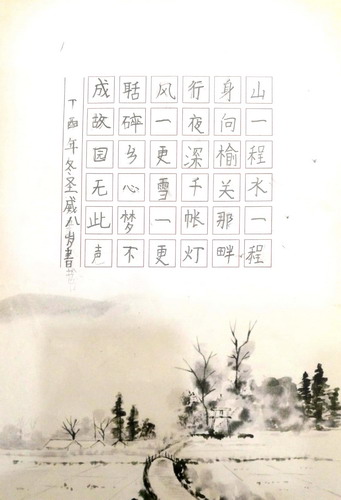 山一程水一程
身向榆关那畔
行夜深千帐灯
风一更雪一更
聒碎乡心梦不
成故园无此声
丁酉年冬圣威八岁書